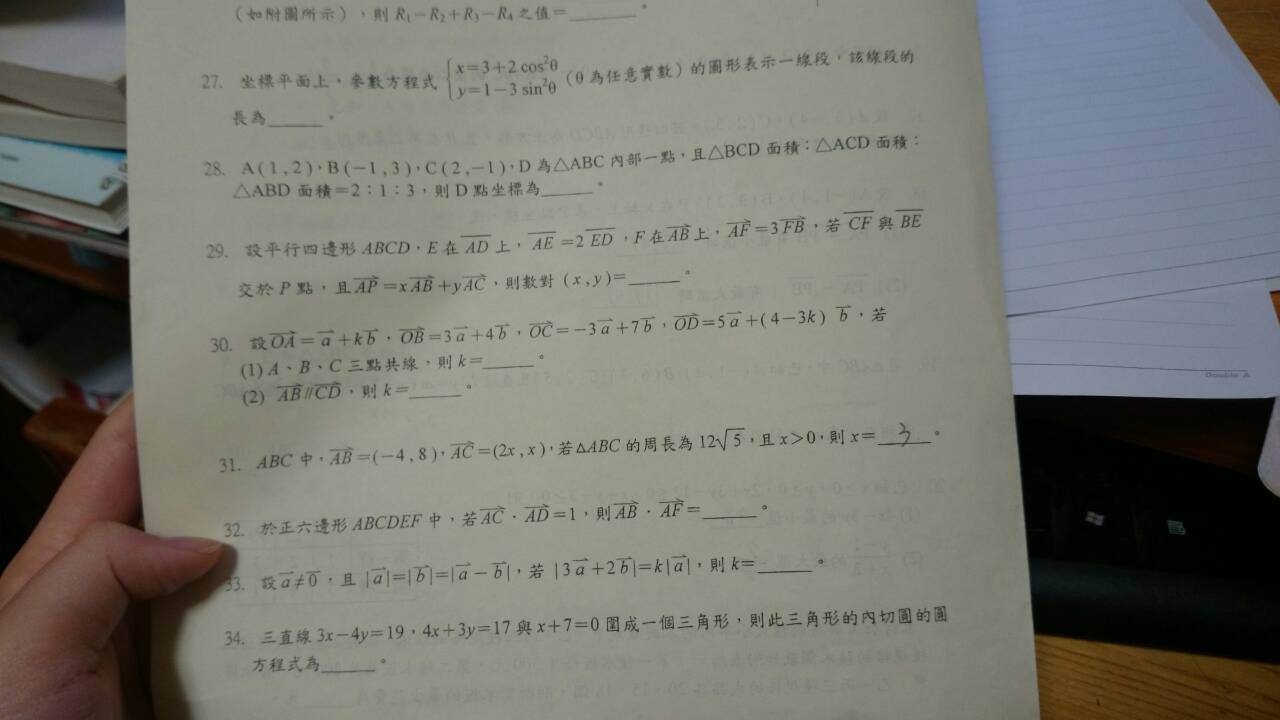 (如附圖所示),則 R₁−R₂+R₃−R₄ 之值=______。
27. 坐標平面上,參數方程式 { x=3+2 cos²θ
y=1−3 sin²θ (θ 為任意實數) 的圖形表示一線段,該線段的
長為______。
28. A(1,2),B(−1,3),C(2,−1),D 為△ABC 內部一點,且△BCD 面積:△ACD 面積:
△ABD 面積=2:1:3,則 D 點坐標為______。
29. 設平行四邊形 ABCD,E 在 A̅D̅ 上,A̅E̅=2E̅D̅,F 在 A̅B̅ 上,A̅F̅=3F̅B̅,若 C̅F̅ 與 B̅E̅
交於 P 點,且 AP⃗=xAB⃗+yAC⃗,則數對 (x,y)=______。
30. 設 OA⃗=a⃗+kb⃗,OB⃗=3a⃗+4b⃗,OC⃗=−3a⃗+7b⃗,OD⃗=5a⃗+(4−3k) b⃗,若
(1) A、B、C 三點共線,則 k=______。
(2) AB⃗//CD⃗,則 k=______。
31. ABC 中,AB⃗=(−4,8),AC⃗=(2x,x),若△ABC 的周長為 12√5,且 x>0,則 x=3。
32. 於正六邊形 ABCDEF 中,若 AC⃗·AD⃗=1,則 AB⃗·AF⃗=______。
33. 設 a⃗≠0⃗,且 |a⃗|=|b⃗|=|a⃗−b⃗|,若 |3a⃗+2b⃗|=k|a⃗|,則 k=______。
34. 三直線 3x−4y=19,4x+3y=17 與 x+7=0 圍成一個三角形,則此三角形的內切圓的圓
方程式為______。
Double A